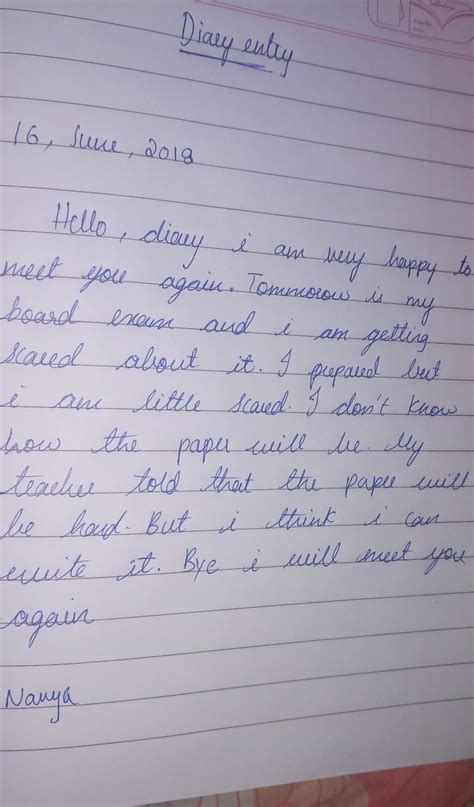 Diary entry
16, June, 2018
Hello, diary i am very happy to
meet you again. Tommorow is my
board exam and i am getting
scared about it. I prepared but
i am little scared. I don't know
how the paper will be. My
teacher told that the paper will
be hard. But i think i can
write it. Bye i will meet you
again
Nanya